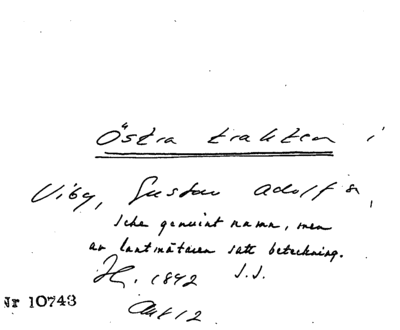 Östra trakten i
Viby, Gustav Adolf sn,
Icke genuint namn, men
av lantmätaren satt beteckning.
H. 1842 J.J.
Nr 10743
Akt 12